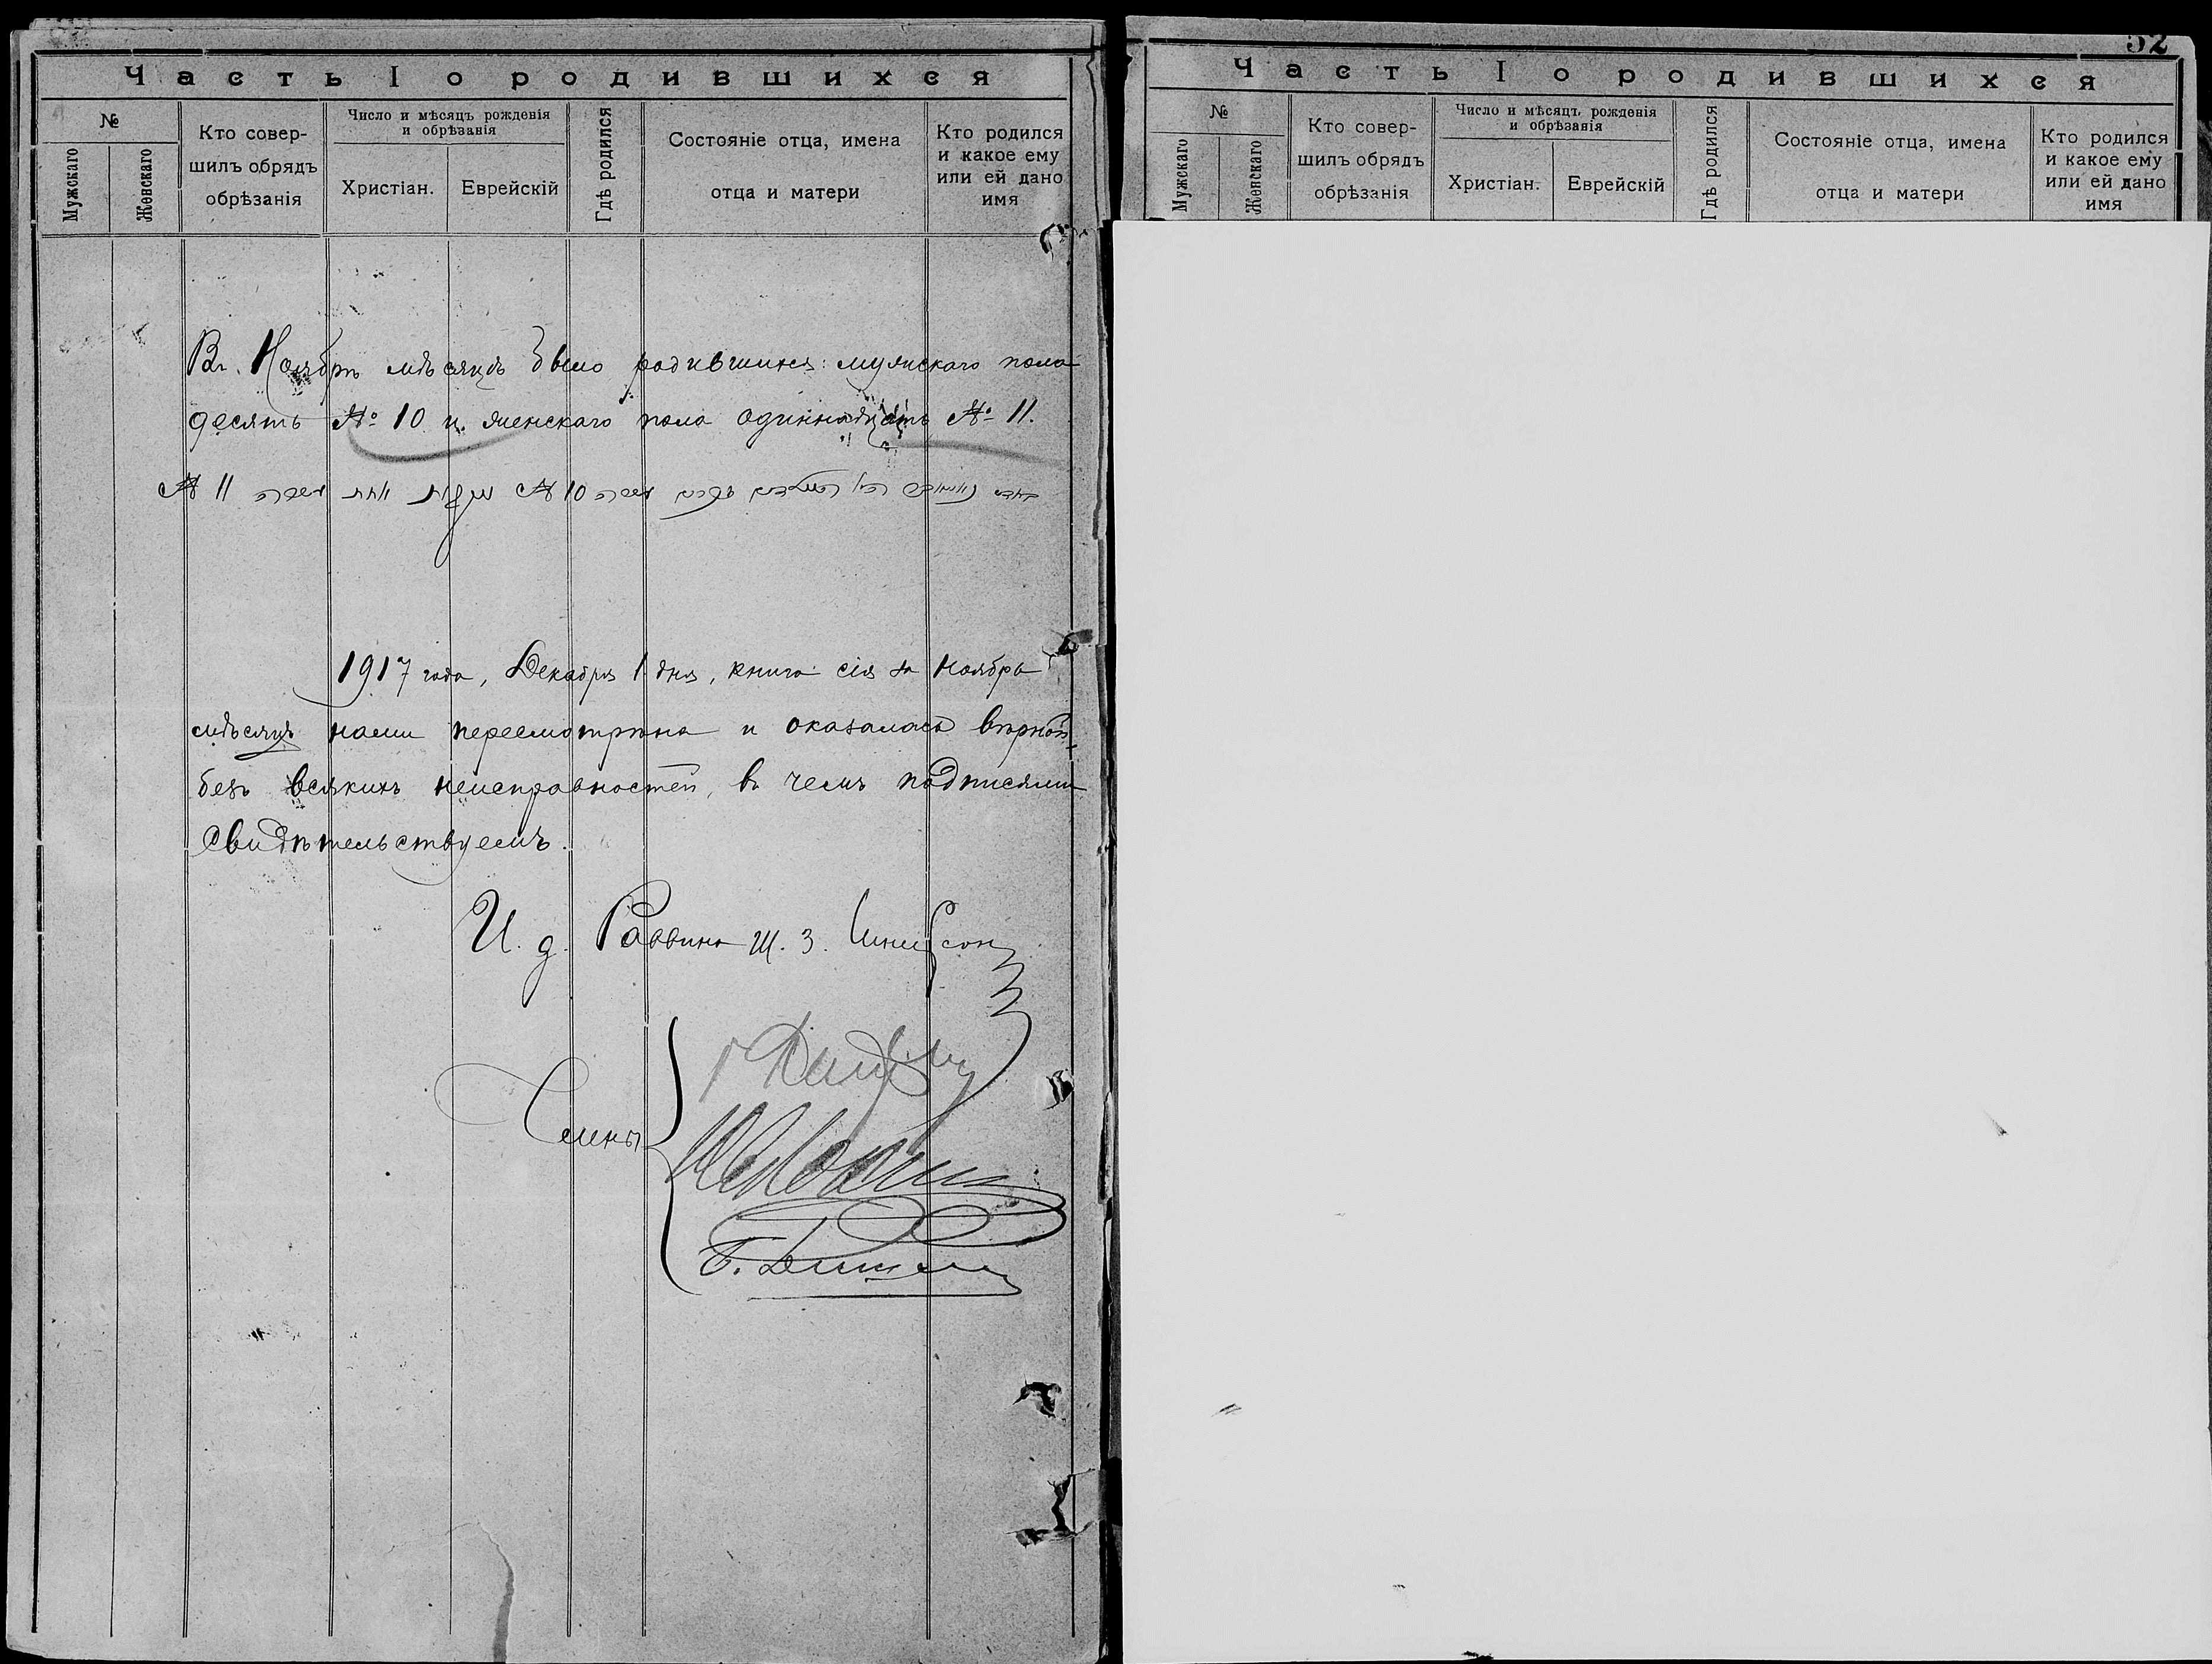 Часть I о родившихся
№
Мужскаго
Женскаго
Кто совер-
шилъ обрядъ
обрѣзанія
Число и мѣсяцъ рожденія
и обрѣзанія
Христіан.
Еврейскій
Гдѣ родился
Состояніе отца, имена
отца и матери
Кто родился
и какое ему
или ей дано
имя
Въ Ноябрѣ мѣсяцѣ было родившихся: мужскаго пола
десять № 10 и женскаго пола одиннадцать № 11.
№ 11 № 10
1917 года, Декабря 1 дня, книга сія за Ноябрь
мѣсяцъ нами пересмотрѣна и оказалась вѣрной
безъ всякихъ неисправностей, въ чемъ подписями
свидѣтельствуемъ.
И. д. Раввина Ш. З. Шнеерсон
Члены
52
Часть I о родившихся
№
Мужскаго
Женскаго
Кто совер-
шилъ обрядъ
обрѣзанія
Число и мѣсяцъ рожденія
и обрѣзанія
Христіан.
Еврейскій
Гдѣ родился
Состояніе отца, имена
отца и матери
Кто родился
и какое ему
или ей дано
имя